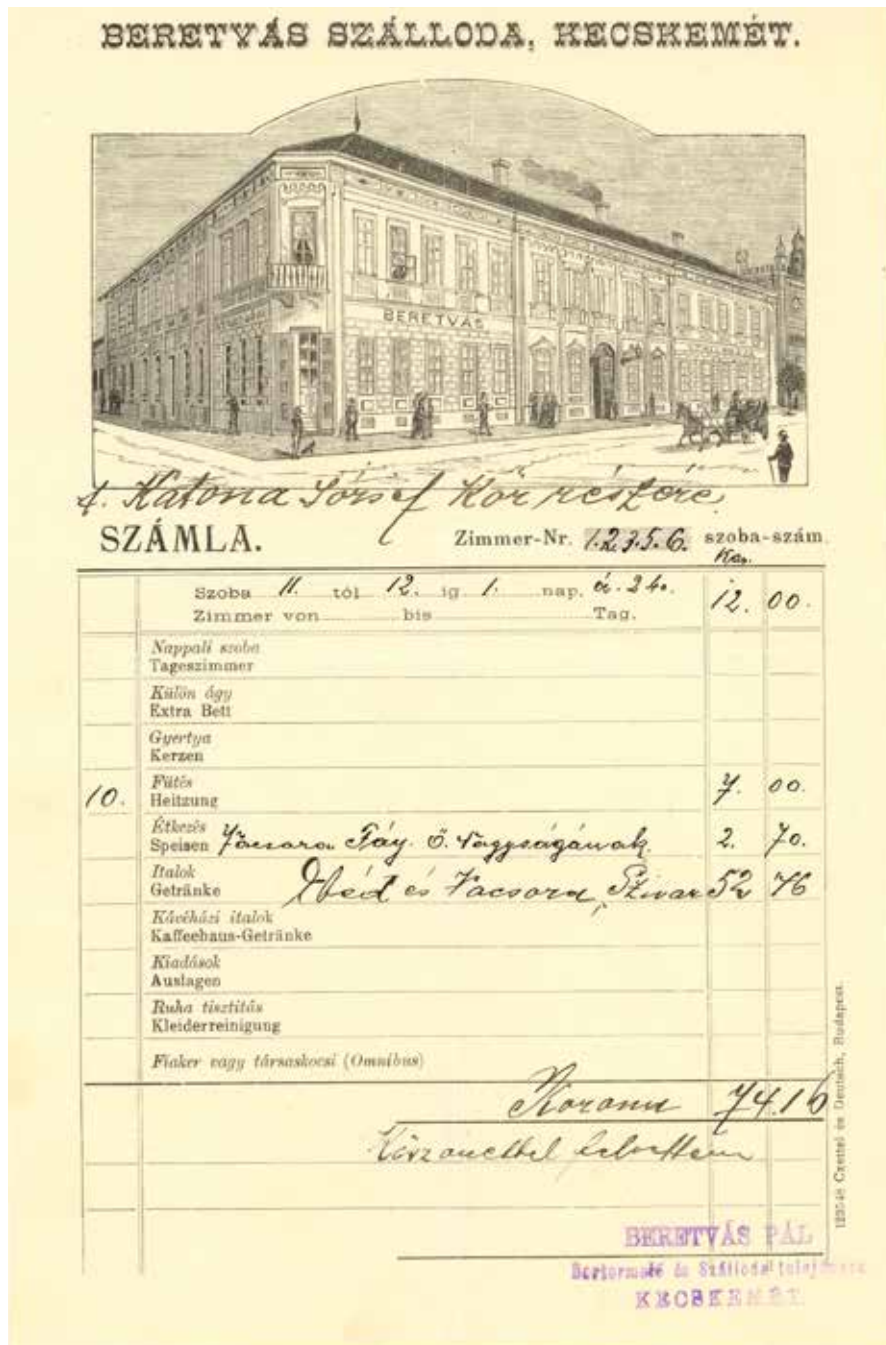 BERETVÁS SZÁLLODA, KECSKEMÉT.
BERETVÁS
A. Katona József Kör részére
SZÁMLA. Zimmer-Nr. 1.2.3.5.6. szoba-szám
Kor.
Szoba 11. tól 12. ig 1. nap. á. 2 40. 12. 00.
Zimmer von bis Tag.
Nappali szoba
Tageszimmer
Külön ágy
Extra Bett
Gyertya
Kerzen
Fűtés
10. Heitzung 7. 00.
Étkezés
Speisen Vacsora Fáy Ő Nagyságának 2. 70.
Italok
Getränke Ebéd és Vacsora, Szivar 52 46
Kávéházi italok
Kaffeehaus-Getränke
Kiadások
Auslagen
Ruha tisztitás
Kleiderreinigung
Fiaker vagy társaskocsi (Omnibus)
Korona 74.16
Köszönettel felvettem
BERETVÁS PÁL
Bortermelő és Szálloda
KECSKEMÉT.
Czettel és Deutsch, Budapest.